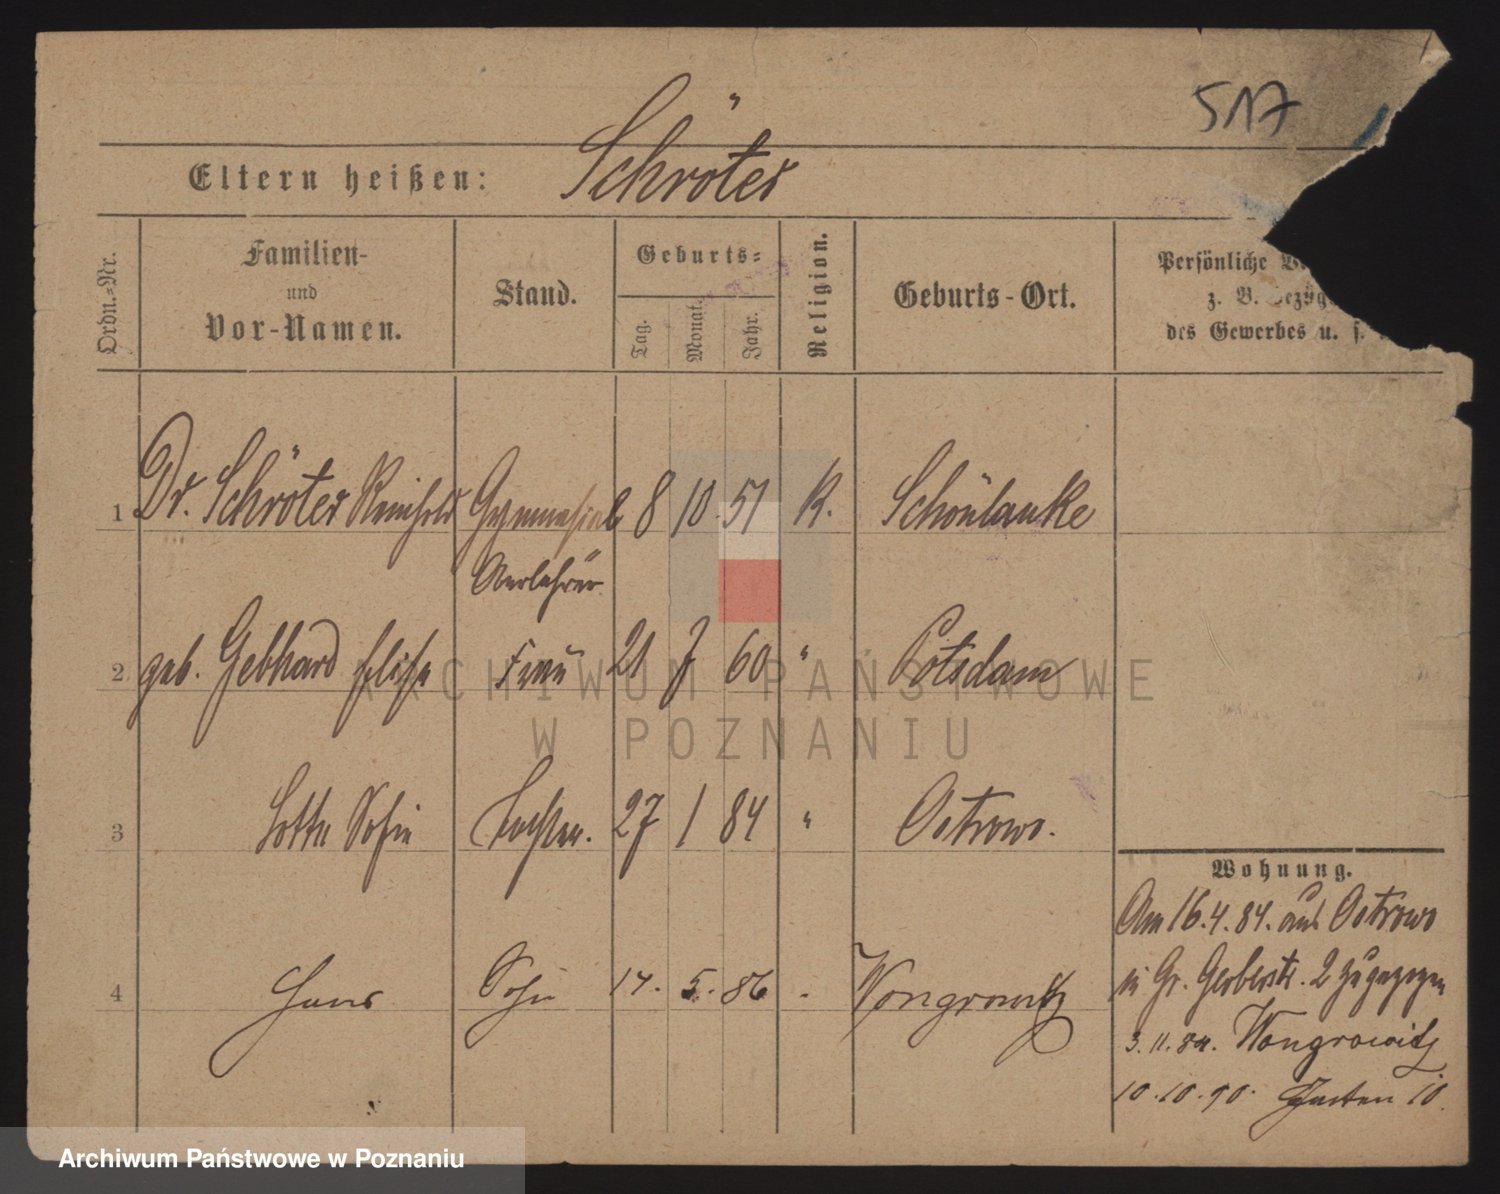 517
Eltern heißen: Schröter
Ordn.-Nr.
Familien-
und
Vor-Namen.
Stand.
Geburts-
Tag. Monat. Jahr.
Religion.
Geburts-Ort.
Persönliche
z. B. Bezüg
des Gewerbes u. s.
1 Dr. Schröter Reinhold Gymnasial 8 10 51 K. Schönlanke
2 geb. Gebhard Elise Frau 21 7 60 " Potsdam
3 Lotte Sofie Tochter. 27 1 84 " Ostrowo.
Wohnung.
Am 16.4.84. aus Ostrowo
in Gr. Gerberstr. 2 zugezogen
4 Hans Sohn 14. 5. 86 Wongrowitz
3.11.84. Wongrowitz
10.10.90. Garten 10.
ARCHIWUM PAŃSTWOWE
W POZNANIU
Archiwum Państwowe w Poznaniu